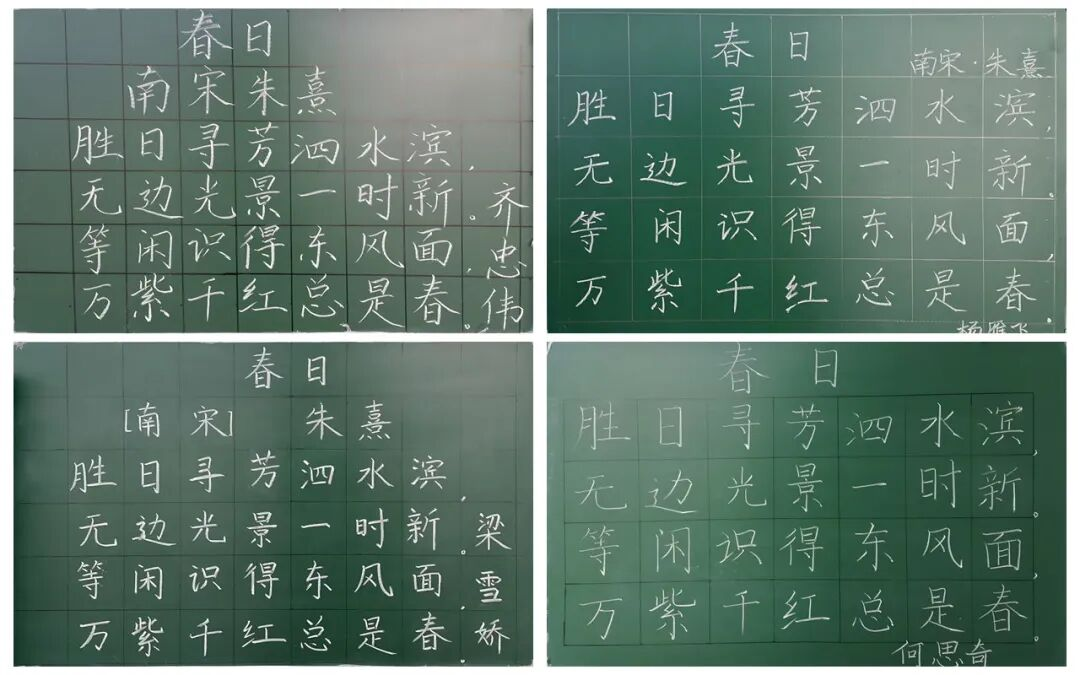 春日
南宋朱熹
胜日寻芳泗水滨，
无边光景一时新。
等闲识得东风面，
万紫千红总是春。
齐忠伟
春日
南宋·朱熹
胜日寻芳泗水滨，
无边光景一时新。
等闲识得东风面，
万紫千红总是春。
杨雁飞
春日
[南宋] 朱熹
胜日寻芳泗水滨，
无边光景一时新。
等闲识得东风面，
万紫千红总是春。
梁雪娇
春日
胜日寻芳泗水滨，
无边光景一时新。
等闲识得东风面，
万紫千红总是春。
何思奇